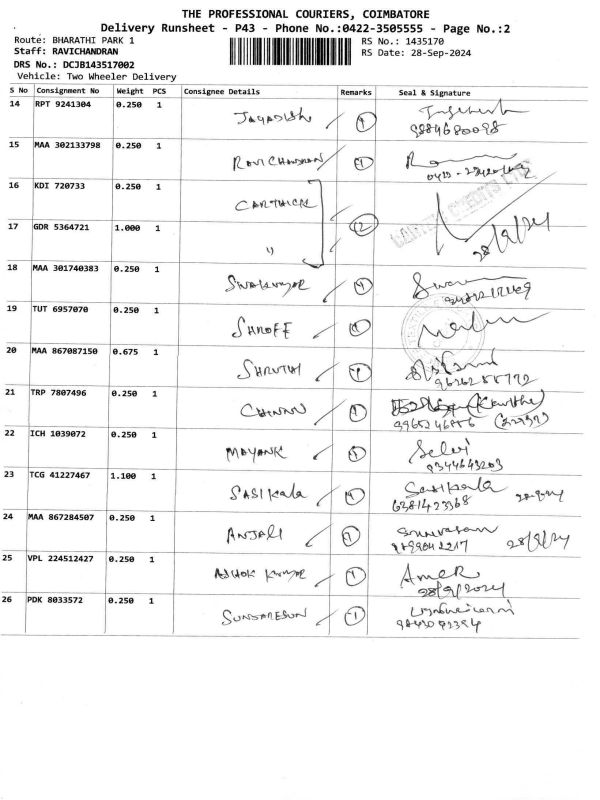 THE PROFESSIONAL COURIERS, COIMBATORE
Delivery Runsheet - P43 - Phone No.:0422-3505555 - Page No.:2
Route: BHARATHI PARK 1 RS No.: 1435170
Staff: RAVICHANDRAN RS Date: 28-Sep-2024
DRS No.: DCJB143517002
Vehicle: Two Wheeler Delivery
S No Consignment No Weight PCS Consignee Details Remarks Seal & Signature
14 RPT 9241304 0.250 1
JAGADISH 1
9884680098
15 MAA 302133798 0.250 1
RAVICHANDRAN 1
16 KDI 720733 0.250 1
CARTHICK
17 GDR 5364721 1.000 1 2
" 28/9/24
18 MAA 301740383 0.250 1
SIVAKUMAR 1
19 TUT 6957070 0.250 1
SHROFF 1
20 MAA 867087150 0.675 1
SHRUTHI 1
9626255772
21 TRP 7807496 0.250 1
CHINAN 1
22 ICH 1039072 0.250 1
MAYANK 1 Selvi
9344643203
23 TCG 41227467 1.100 1
SASIKala 1 Sasikala
6381423368 28-9-24
24 MAA 867284507 0.250 1
ANJALI 1 Srinivasan
28/9/24
25 VPL 224512427 0.250 1
ASHOK KUMAR 1
28/9/2024
26 PDK 8033572 0.250 1
SUNDARESUN 1